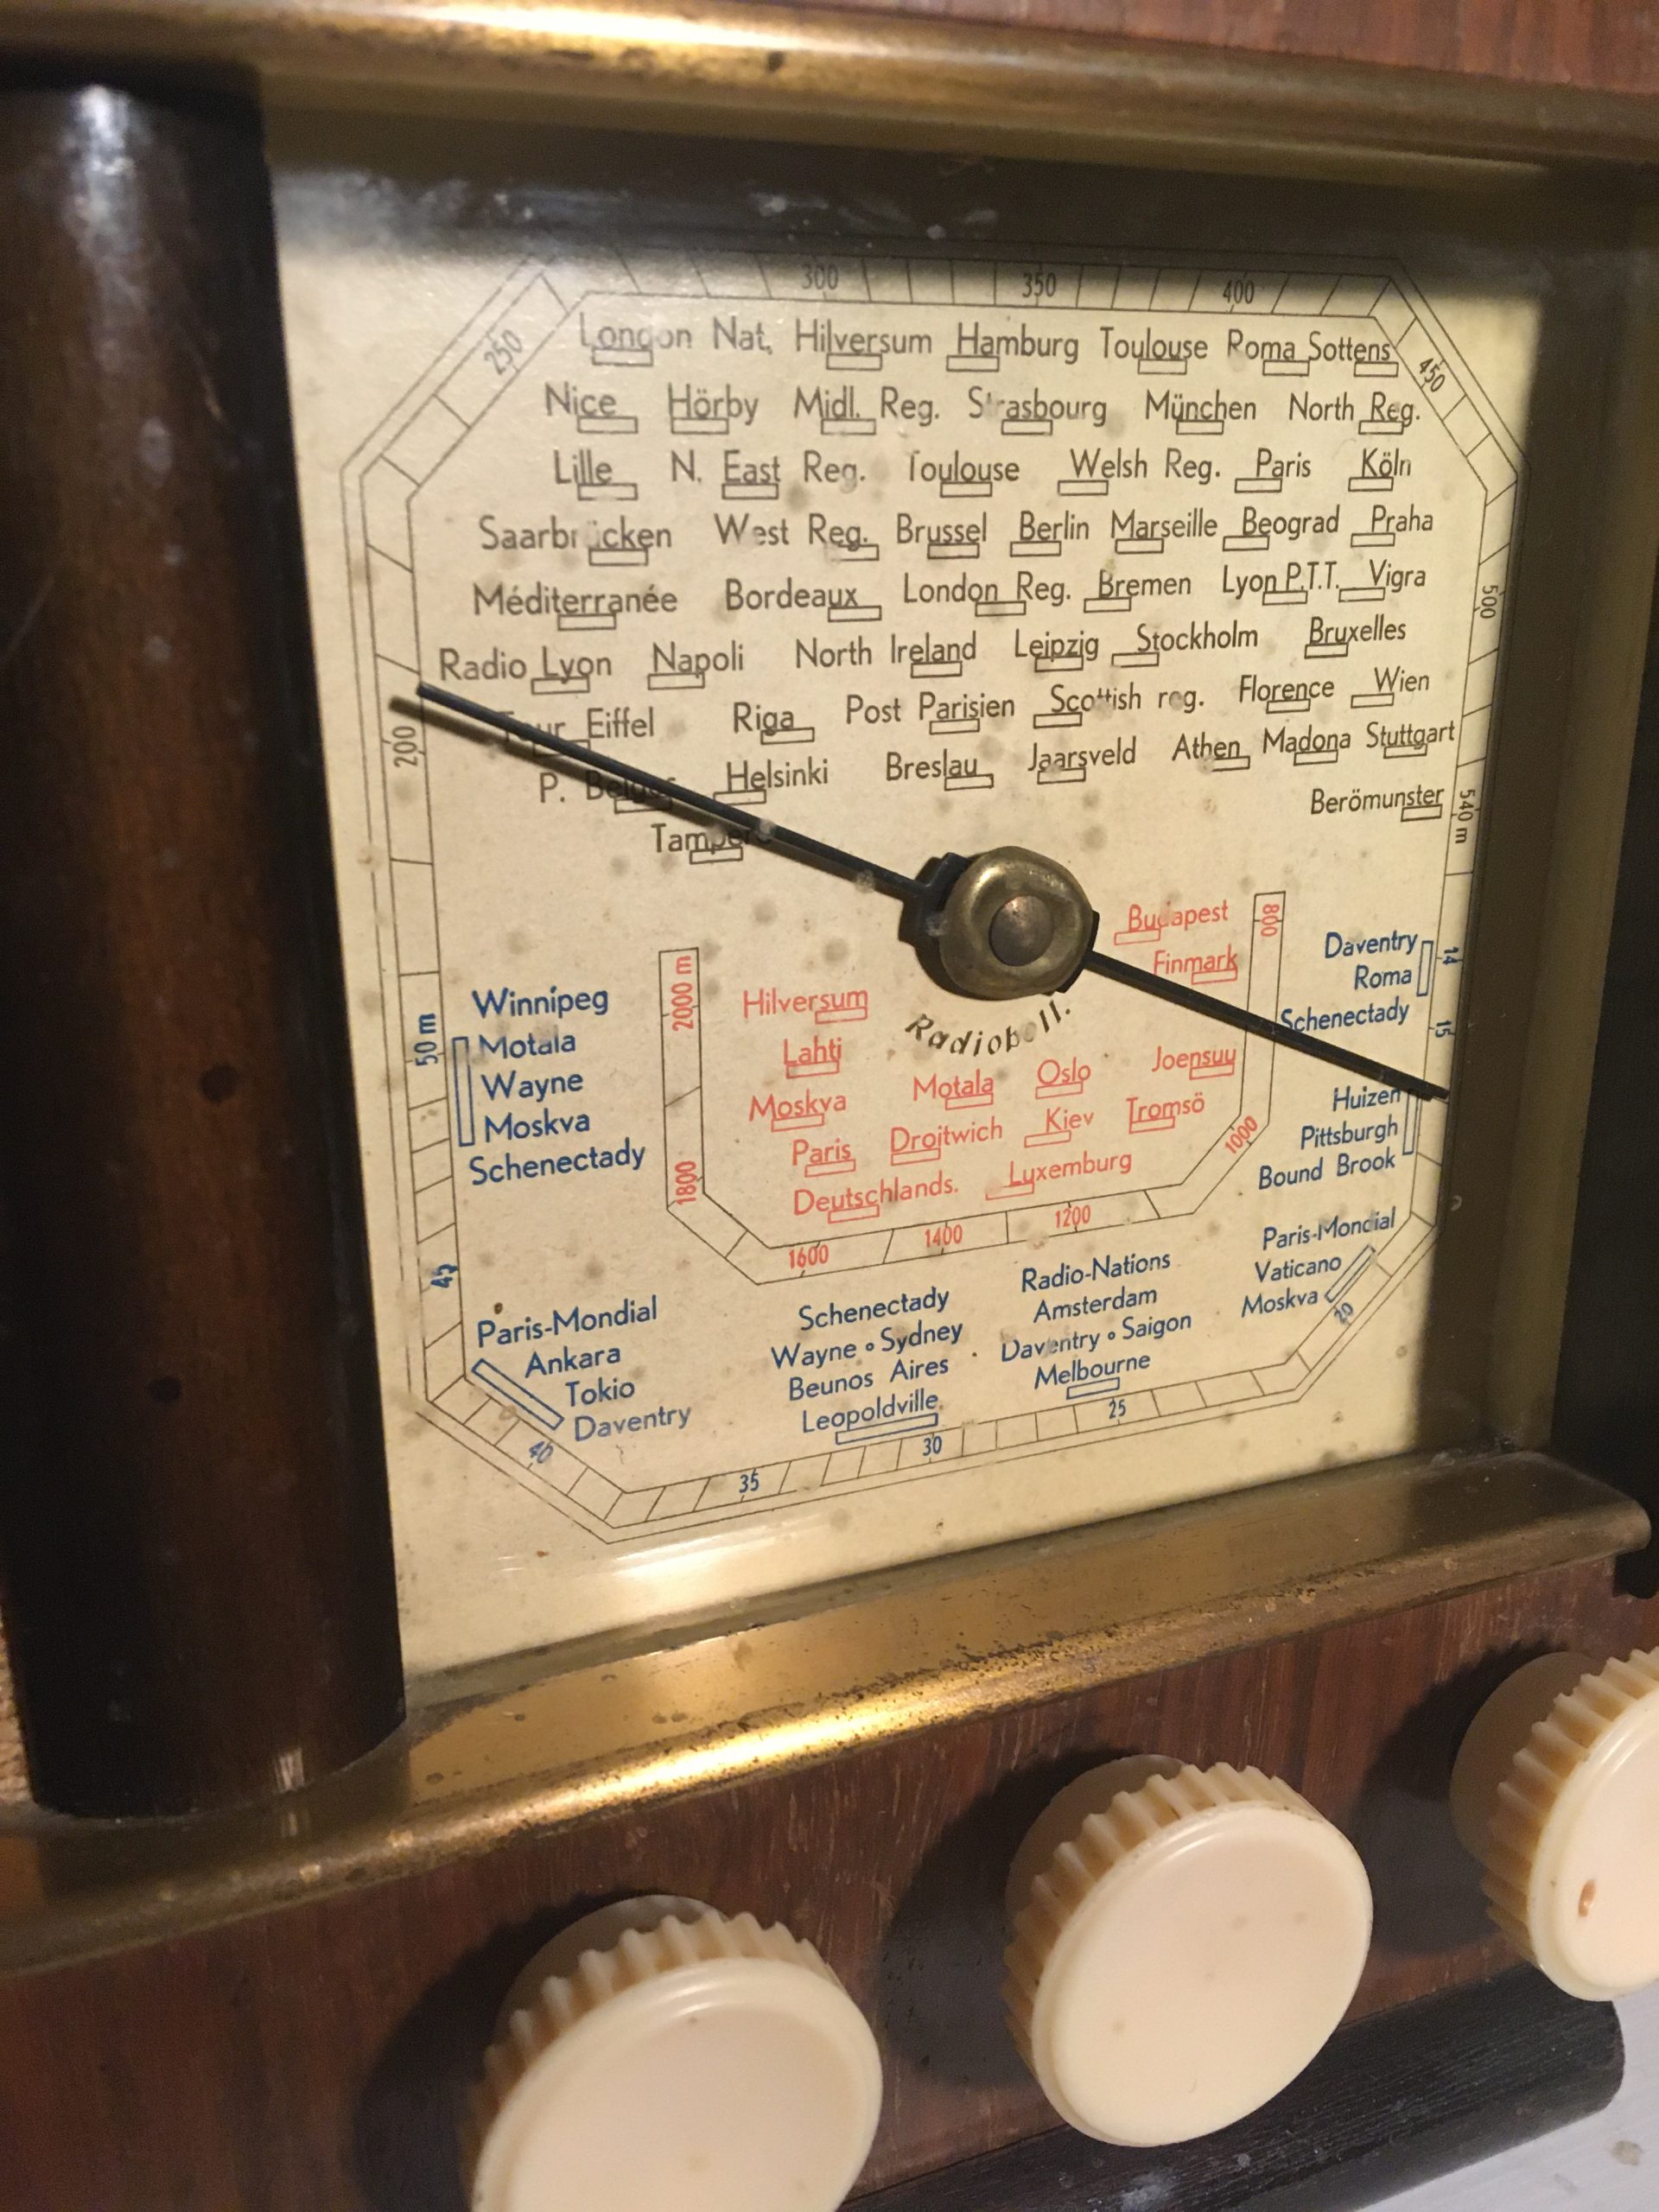 300 350 400
250 450
London Nat. Hilversum Hamburg Toulouse Roma Sottens
Nice Hörby Midl. Reg. Strasbourg München North Reg.
Lille N. East Reg. Toulouse Welsh Reg. Paris Köln
Saarbrücken West Reg. Brussel Berlin Marseille Beograd Praha
Méditerranée Bordeaux London Reg. Bremen Lyon P.T.T. Vigra
500
Radio Lyon Napoli North Ireland Leipzig Stockholm Bruxelles
Tour Eiffel Riga Post Parisien Scottish reg. Florence Wien
200
P. Belges Helsinki Breslau Jaarsveld Athen Madona Stuttgart
Tampere Berömunster
540 m
Radiobell.
2000 m
1800
1600 1400 1200
1000
800
Budapest
Finmark
Hilversum
Lahti
Moskva Motala Oslo Joensuu
Paris Droitwich Kiev Tromsö
Deutschlands. Luxemburg
50 m
Winnipeg
Motala
Wayne
Moskva
Schenectady
45
Daventry
Roma
Schenectady
14
15
Huizen
Pittsburgh
Bound Brook
Paris-Mondial
Vaticano
Moskva
20
Paris-Mondial
Ankara
Tokio
Daventry
40
Schenectady
Wayne • Sydney
Beunos Aires
Leopoldville
Radio-Nations
Amsterdam
Daventry • Saigon
Melbourne
35 30 25